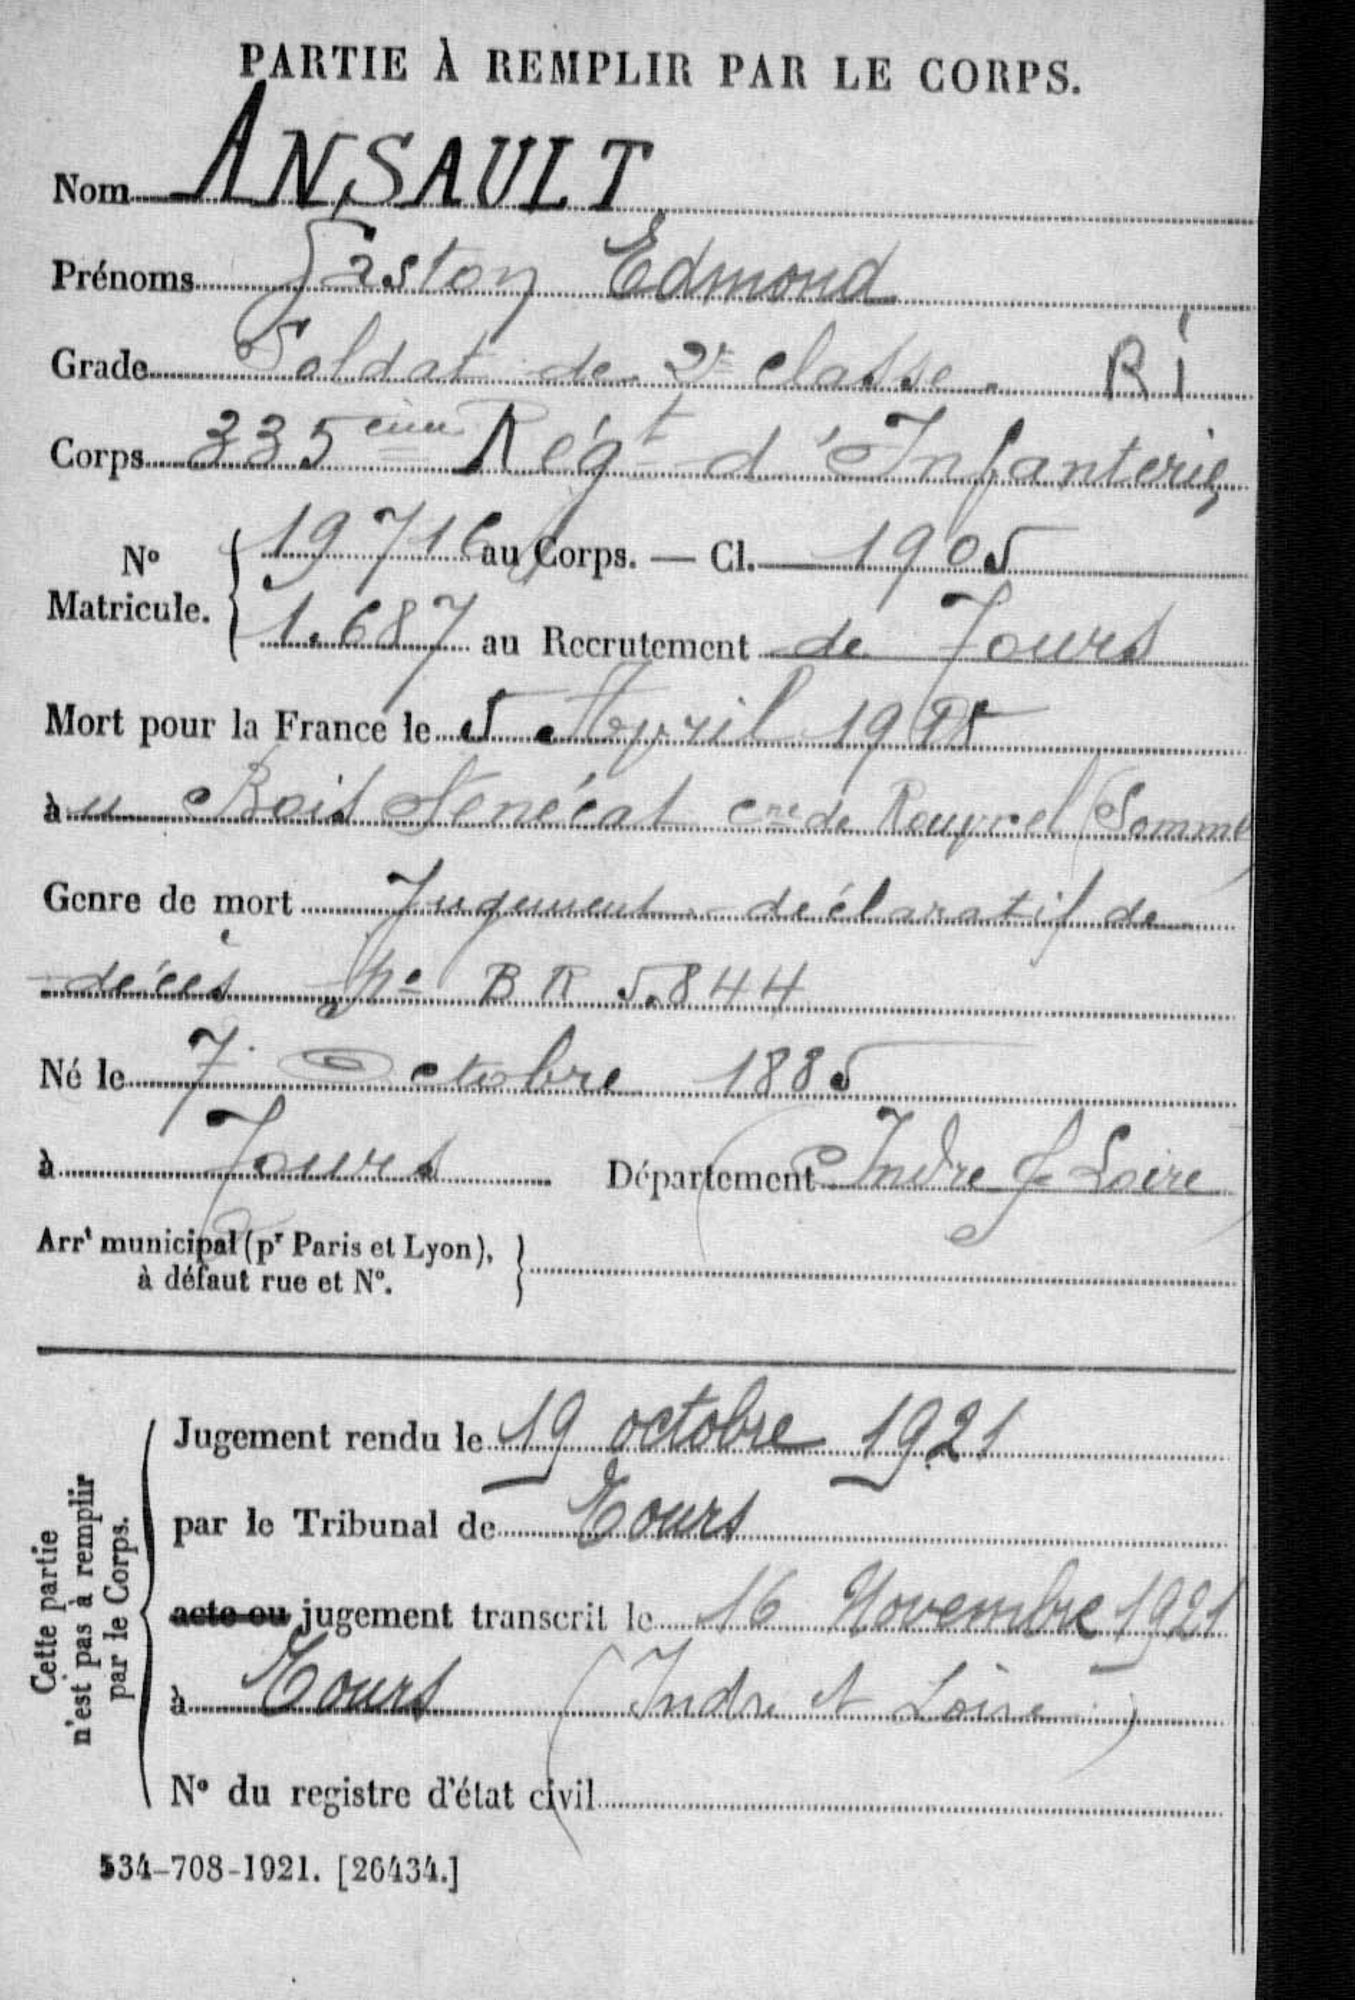 PARTIE À REMPLIR PAR LE CORPS.
Nom ANSAULT
Prénoms Gaston Edmond
Grade Soldat de 2e classe. RI
Corps 335ème Régt d'Infanterie
No Matricule. { 19716 au Corps. — Cl. 1905
1.687 au Recrutement de Tours
Mort pour la France le 5 Avril 1918
à u Bois Sénécat cne de Rouvrel (Somme)
Genre de mort Jugement déclaratif de
décès No BR 5.844
Né le 7 Octobre 1885
à Tours Département Indre & Loire
Arrt municipal (pr Paris et Lyon),
à défaut rue et No. }
Cette partie
n'est pas à remplir
par le Corps.
Jugement rendu le 19 octobre 1921
par le Tribunal de Tours
acte ou jugement transcrit le 16 Novembre 1921
à Tours (Indre et Loire)
No du registre d'état civil
534-708-1921. [26434.]